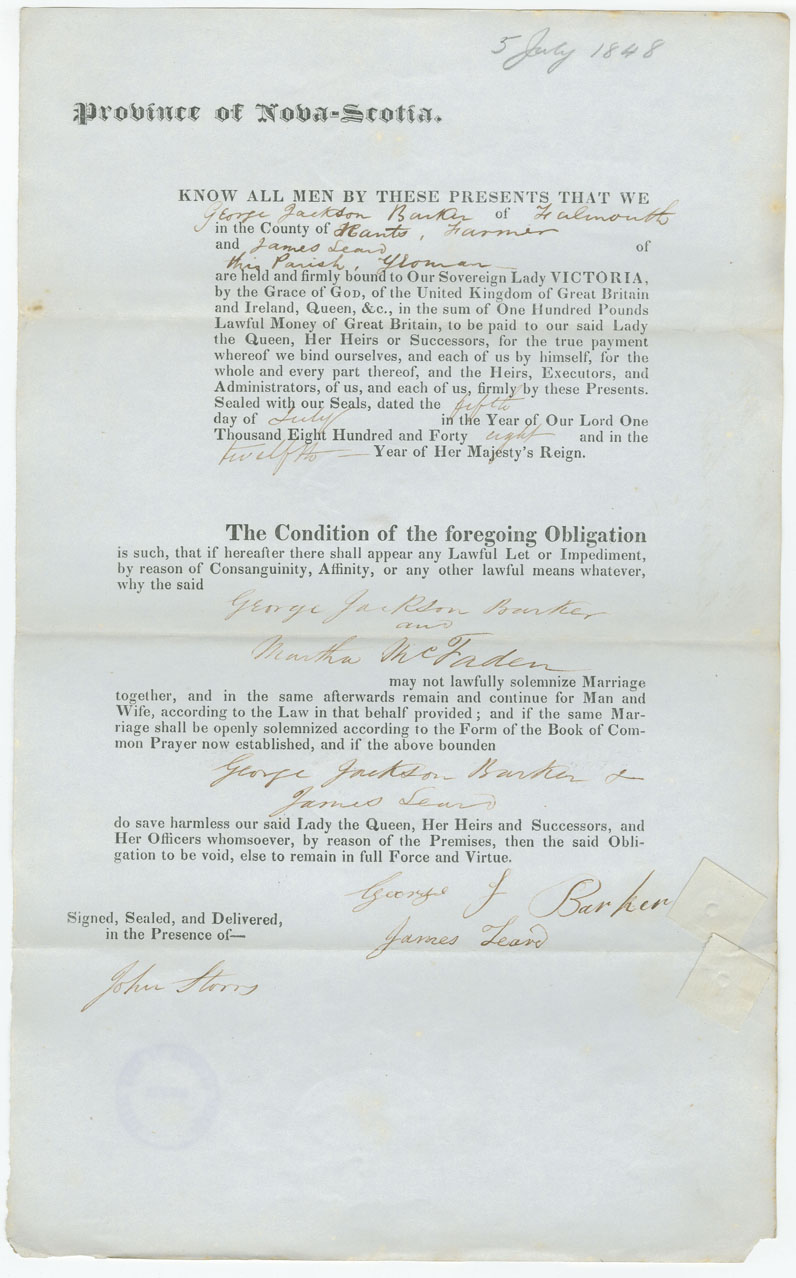 5 July 1848
Province of Nova-Scotia.
KNOW ALL MEN BY THESE PRESENTS THAT WE
George Jackson Barker of Falmouth
in the County of Hants, Farmer
and James Leard of
this Parish, Yeoman
are held and firmly bound to Our Sovereign Lady VICTORIA,
by the Grace of GOD, of the United Kingdom of Great Britain
and Ireland, Queen, &c., in the sum of One Hundred Pounds
Lawful Money of Great Britain, to be paid to our said Lady
the Queen, Her Heirs or Successors, for the true payment
whereof we bind ourselves, and each of us by himself, for the
whole and every part thereof, and the Heirs, Executors, and
Administrators, of us, and each of us, firmly by these Presents.
Sealed with our Seals, dated the fifth
day of July in the Year of Our Lord One
Thousand Eight Hundred and Forty eight and in the
twelfth — Year of Her Majesty's Reign.
The Condition of the foregoing Obligation
is such, that if hereafter there shall appear any Lawful Let or Impediment,
by reason of Consanguinity, Affinity, or any other lawful means whatever,
why the said
George Jackson Barker
and
Martha McFaden
may not lawfully solemnize Marriage
together, and in the same afterwards remain and continue for Man and
Wife, according to the Law in that behalf provided; and if the same Mar-
riage shall be openly solemnized according to the Form of the Book of Com-
mon Prayer now established, and if the above bounden
George Jackson Barker &
James Leard
do save harmless our said Lady the Queen, Her Heirs and Successors, and
Her Officers whomsoever, by reason of the Premises, then the said Obli-
gation to be void, else to remain in full Force and Virtue.
George J Barker
Signed, Sealed, and Delivered,
in the Presence of—
James Leard
John Storrs